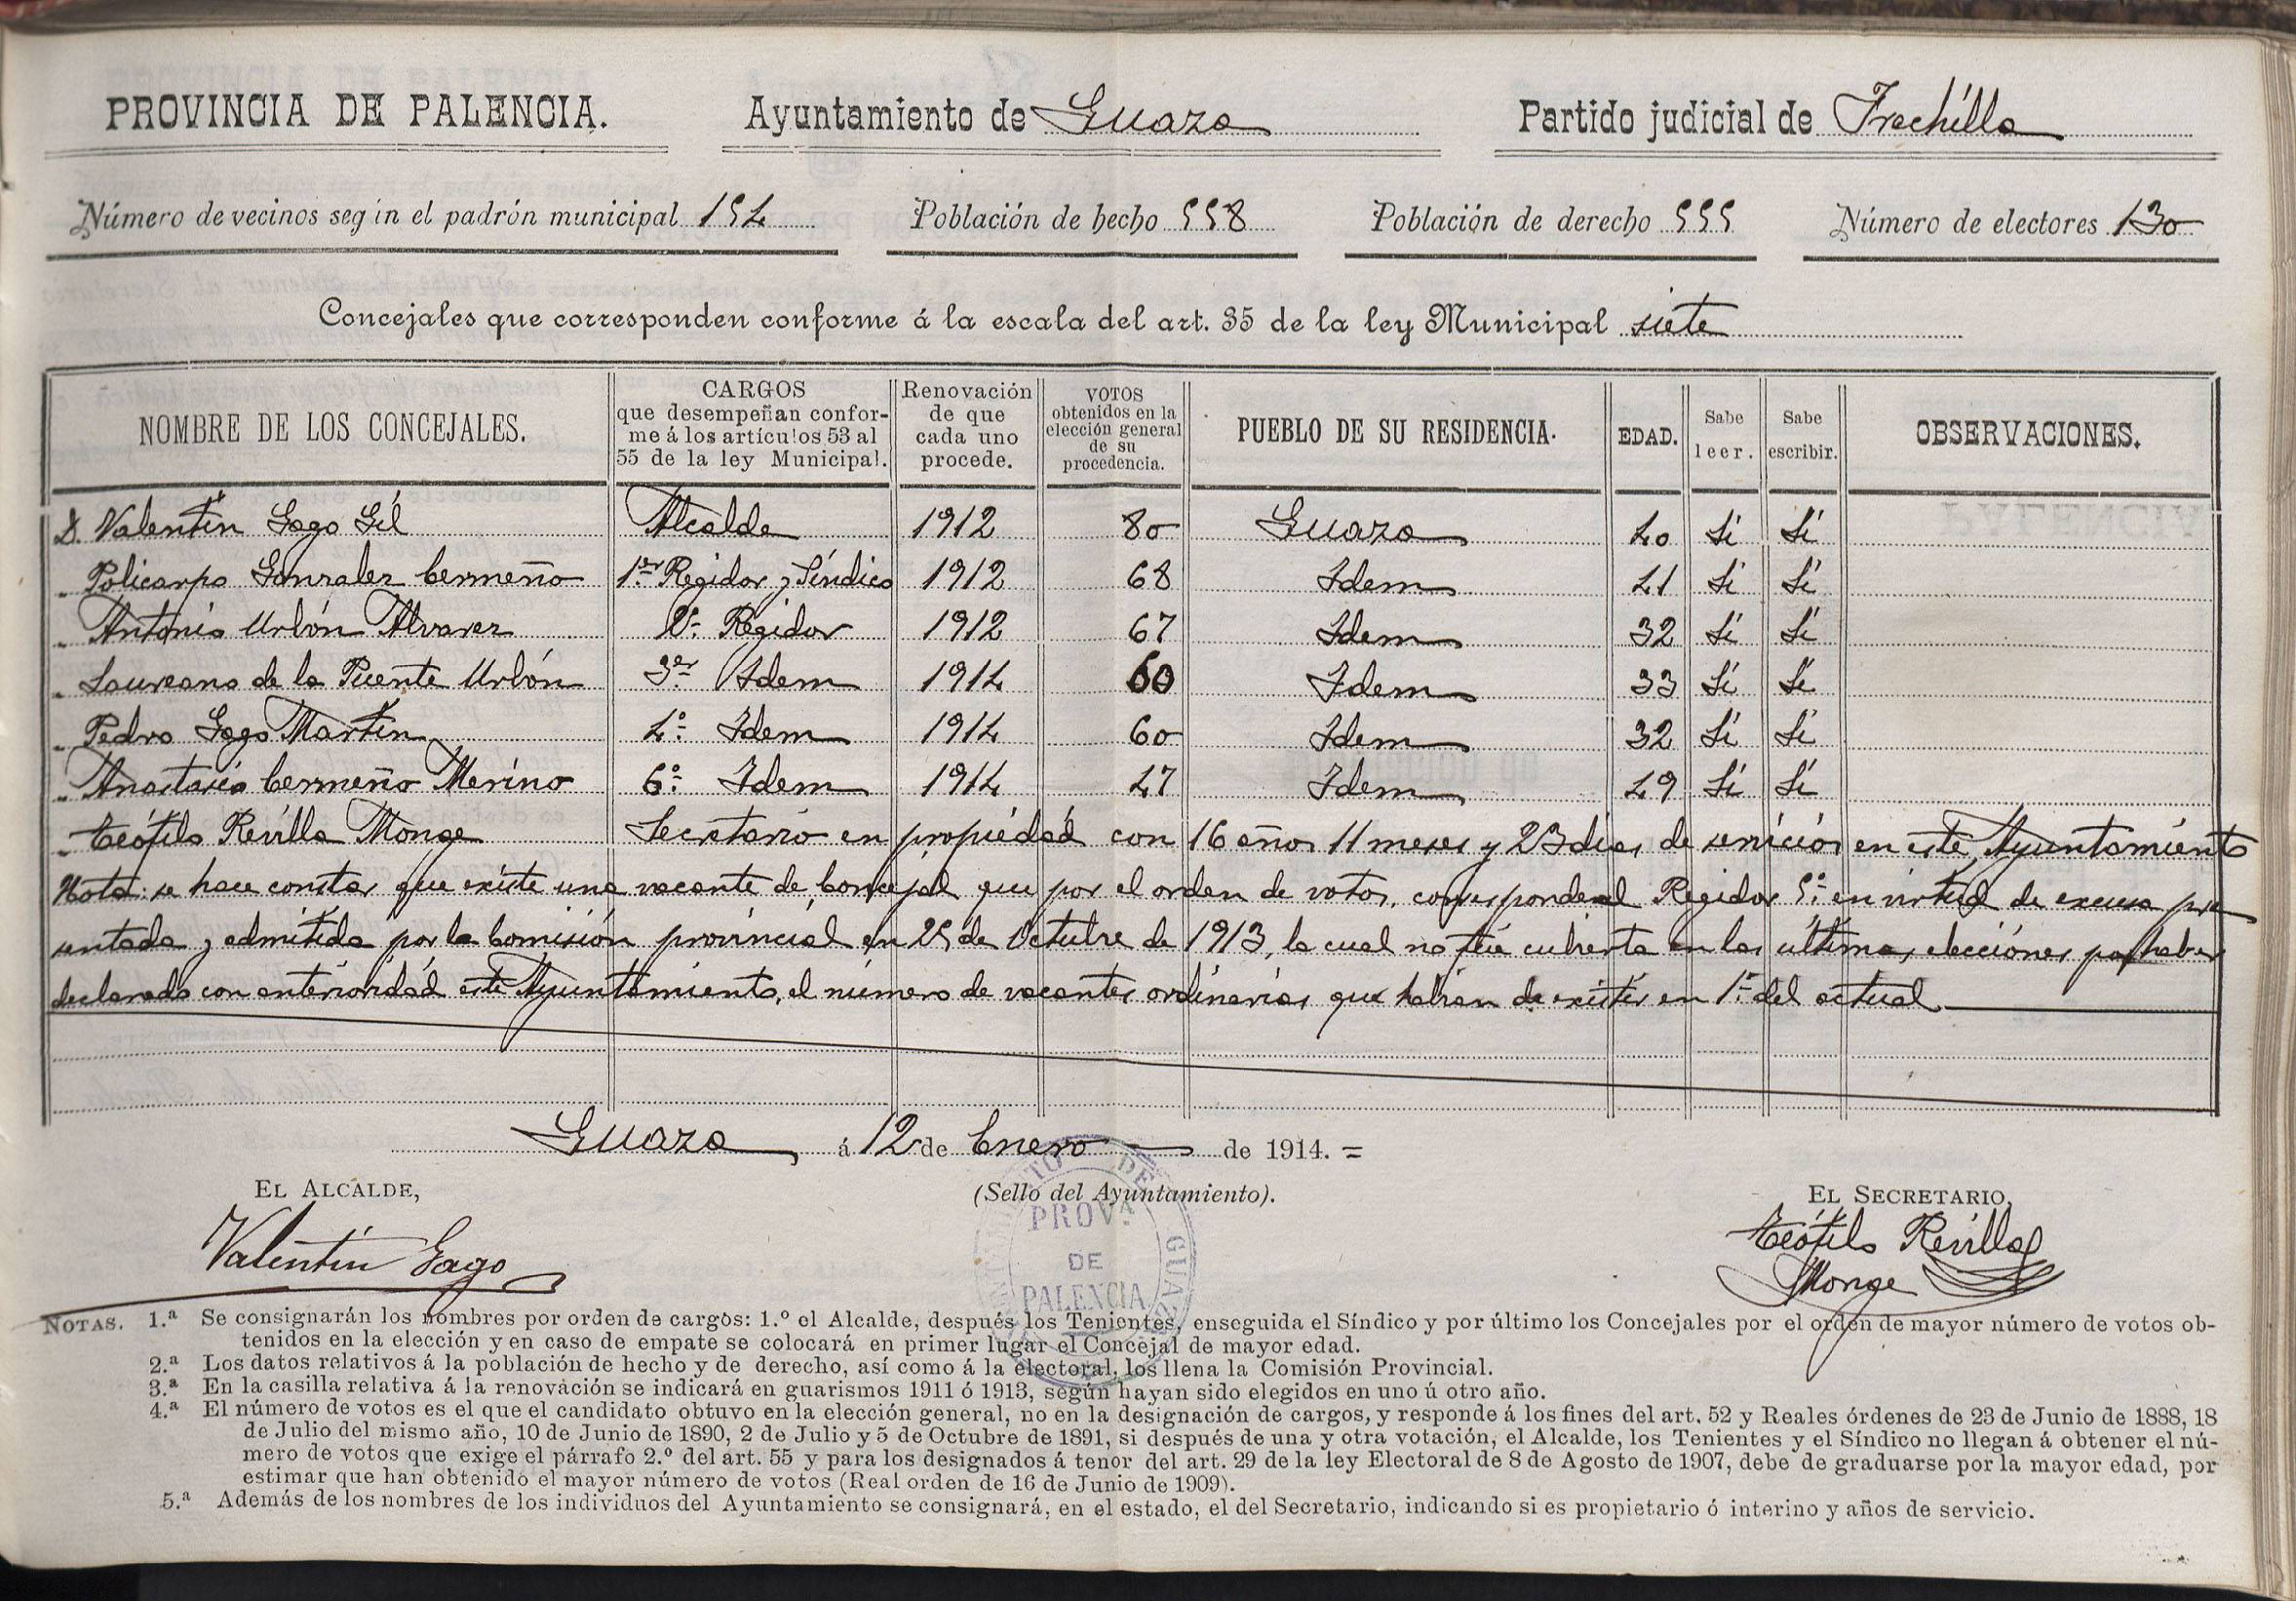 PROVINCIA DE PALENCIA. Ayuntamiento de Guaza Partido judicial de Frechilla
Número de vecinos seg in el padrón municipal 154 Población de hecho 558 Población de derecho 555 Número de electores 130
Concejales que corresponden conforme á la escala del art. 35 de la ley Municipal siete
NOMBRE DE LOS CONCEJALES. CARGOS que desempeñan confor- me á los artículos 53 al 55 de la ley Municipal. Renovación de que cada uno procede. VOTOS obtenidos en la elección general de su procedencia. PUEBLO DE SU RESIDENCIA. EDAD. Sabe leer. Sabe escribir. OBSERVACIONES.
D. Valentín Gago Gil Alcalde 1912 80 Guaza 40 Sí Sí
" Policarpo Gonzalez Cermeño 1er Regidor y Síndico 1912 68 Idem 41 Sí Sí
" Antonio Urbón Alvarez 2º Regidor 1912 67 Idem 32 Sí Sí
" Laureano de la Puente Urbón 3er Idem 1914 60 Idem 33 Sí Sí
" Pedro Gago Martín 4º Idem 1914 60 Idem 32 Sí Sí
" Anastasio Cermeño Merino 6º Idem 1914 47 Idem 49 Sí Sí
" Teófilo Revilla Monge Secretario en propiedad con 16 años 11 meses y 23 días de servicios en este Ayuntamiento
Nota: se hace constar que existe una vacante de Concejal que por el orden de votos, corresponde al Regidor 5º en virtud de excusa pre
sentada y admitida por la Comisión provincial en 25 de Octubre de 1913, la cual no fué cubierta en las últimas elecciones por haber
declarado con anterioridad este Ayuntamiento, el número de vacantes ordinarias que habían de existir en 1º del actual
Guaza á 12 de Enero de 1914. =
EL ALCALDE, (Sello del Ayuntamiento). EL SECRETARIO,
Valentín Gago Teófilo Revilla
Monge
PROVª
DE
PALENCIA
DE GUAZA
NOTAS. 1.ª Se consignarán los nombres por orden de cargos: 1.º el Alcalde, después los Tenientes, enseguida el Síndico y por último los Concejales por el orden de mayor número de votos ob-
tenidos en la elección y en caso de empate se colocará en primer lugar el Concejal de mayor edad.
2.ª Los datos relativos á la población de hecho y de derecho, así como á la electoral, los llena la Comisión Provincial.
3.ª En la casilla relativa á la renovación se indicará en guarismos 1911 ó 1913, según hayan sido elegidos en uno ú otro año.
4.ª El número de votos es el que el candidato obtuvo en la elección general, no en la designación de cargos, y responde á los fines del art. 52 y Reales órdenes de 23 de Junio de 1888, 18
de Julio del mismo año, 10 de Junio de 1890, 2 de Julio y 5 de Octubre de 1891, si después de una y otra votación, el Alcalde, los Tenientes y el Síndico no llegan á obtener el nú-
mero de votos que exige el párrafo 2.º del art. 55 y para los designados á tenor del art. 29 de la ley Electoral de 8 de Agosto de 1907, debe de graduarse por la mayor edad, por
estimar que han obtenido el mayor número de votos (Real orden de 16 de Junio de 1909).
5.ª Además de los nombres de los individuos del Ayuntamiento se consignará, en el estado, el del Secretario, indicando si es propietario ó interino y años de servicio.